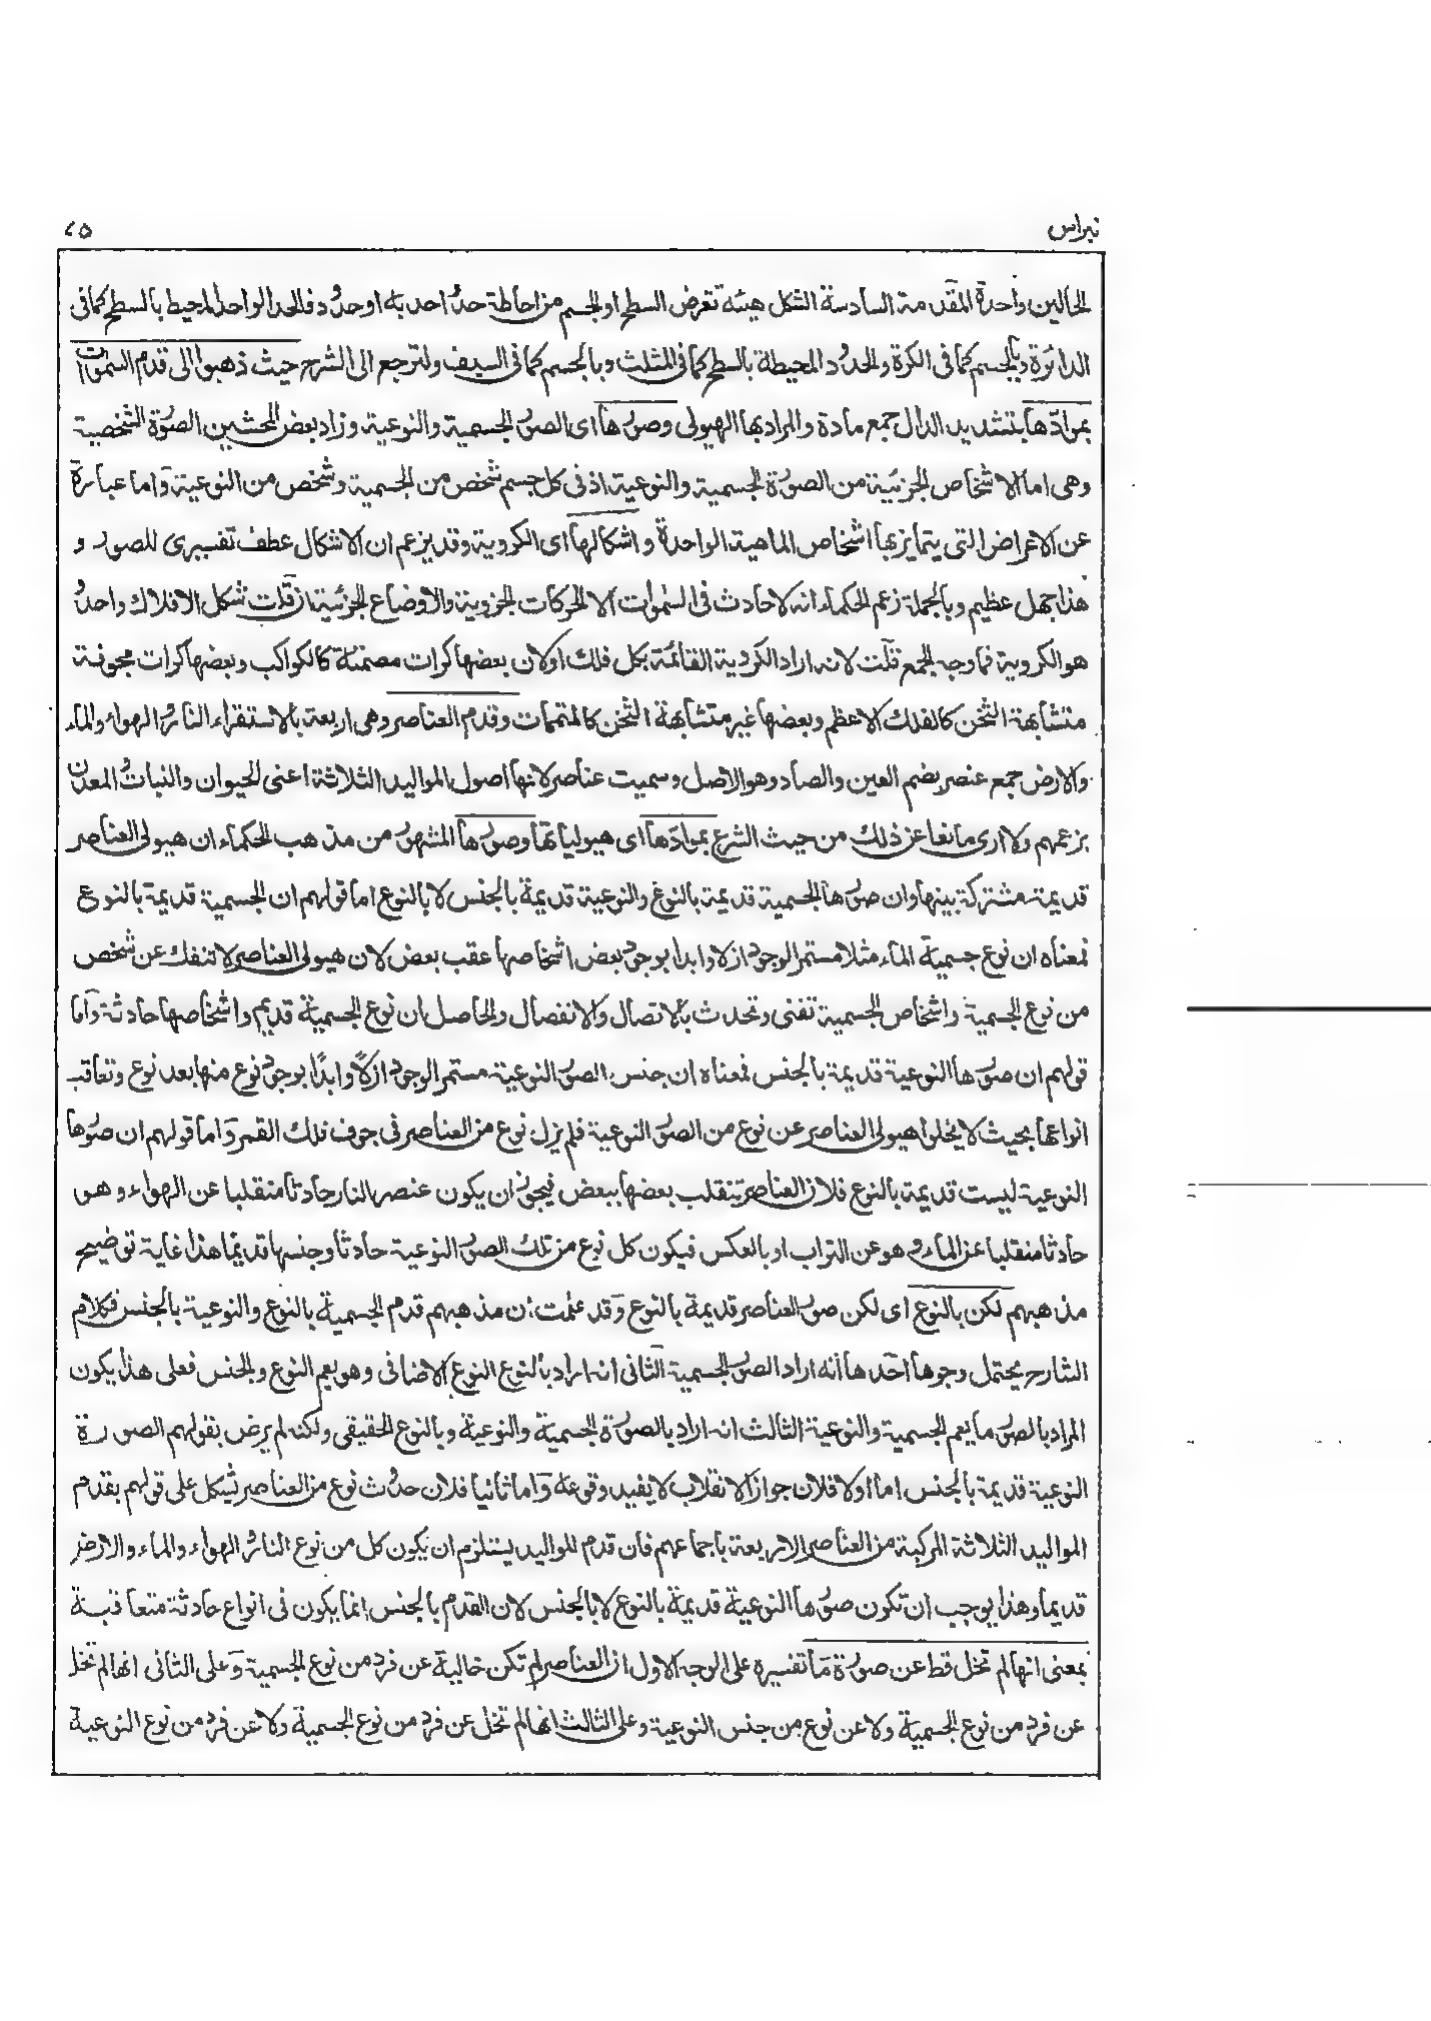 نبراس
٤٥
الحالين واحدة المقدمة السادسة الشكل هيئة تعرض السطح او الجسم من احاطة حد واحد به او حدود فالحد الواحد المحيط بالسطح كما فى
الدائرة وبالجسم كما فى الكرة والحدود المحيطة بالسطح كما فى المثلث وبالجسم كما فى السيف ولنرجع الى الشرح حيث ذهبوا الى قدم السموات
بموادها بتشديد الدال جمع مادة والمراد بها الهيولى وصورها اى الصور الجسمية والنوعية وزاد بعض المحشيين الصورة الشخصية
وهى اما الاشخاص الجزئية من الصورة الجسمية والنوعية اذ فى كل جسم شخص من الجسمية وشخص من النوعية واما عبارة
عن الاعراض التى يتمايز بها اشخاص الماهية الواحدة واشكالها اى الكروية وقد يزعم ان الاشكال عطف تفسيرى للصور و
هذا جهل عظيم وبالجملة زعم الحكماء انه لا حادث فى السموات الا الحركات الجزوية والاوضاع الجزئية فان قلت شكل الافلاك واحد و
هو الكروية فما وجه الجمع قلت لانه اراد الكروية القائمة بكل فلك او لان بعضها كرات مصمتة كالكواكب وبعضها كرات مجوفة
متشابهة الثخن كالفلك الاعظم وبعضها غير متشابهة الثخن كالمتممات وقدم العناصر وهى اربعة بالاستقراء النار والهواء والماء
والارض جمع عنصر بضم العين والصاد وهو الاصل وسميت عناصر لانها اصول المواليد الثلاثة اعنى الحيوان والنبات والمعدن
بزعمهم ولا ارى مانعا عن ذلك من حيث الشرع بموادها اى هيولياتها وصورها المشهور من مذهب الحكماء ان هيولى العناصر
قديمة مشتركة بينها وان صورها الجسمية قديمة بالنوع والنوعية قديمة بالجنس لا بالنوع اما قولهم ان الجسمية قديمة بالنوع
فمعناه ان نوع جسمية الماء مثلا مستمر الوجود ازلا وابدا بوجود بعض اشخاصها عقب بعض لان هيولى العناصر لا تنفك عن شخص
من نوع الجسمية واشخاص الجسمية تفنى وتحدث بالاتصال والانفصال والحاصل ان نوع الجسمية قديم واشخاصها حادثة واما
قولهم ان صورها النوعية قديمة بالجنس فمعناه ان جنس الصور النوعية مستمر الوجود ازلاً وابدًا بوجود نوع منها بعد نوع وتعاقب
انواعها بحيث لا يخلوا هيولى العناصر عن نوع من الصور النوعية فلم يزل نوع من العناصر فى جوف فلك القمر واما قولهم ان صورها
النوعية ليست قديمة بالنوع فلان العناصر تنقلب بعضها ببعض فيجوز ان يكون عنصر النار حادثا منقلبا عن الهواء وهو
حادثا منقلبا عن الماء وهو عن التراب او بالعكس فيكون كل نوع من تلك الصور النوعية حادثا وجنسها قديما هذا غاية توضيح
مذهبهم لكن بالنوع اى لكن صور العناصر قديمة بالنوع وقد علمت ان مذهبهم قدم الجسمية بالنوع والنوعية بالجنس فكلام
الشارح يحتمل وجوها احدها انه اراد الصور الجسمية الثانى انه اراد بالنوع النوع الاضافى وهو يعم النوع والجنس فعلى هذا يكون
المراد بالصور ما يعم الجسمية والنوعية الثالث انه اراد بالصورة الجسمية والنوعية وبالنوع الحقيقى ولكنه لم يرض بقولهم الصورة
النوعية قديمة بالجنس اما اولا فلان جواز الانقلاب لا يفيد وقوعه واما ثانيا فلان حدوث نوع من العناصر يشكل على قولهم بقدم
المواليد الثلاثة المركبة من العناصر الاربعة باجماعهم فان قدم المواليد يستلزم ان يكون كل من نوع النار والهواء والماء والارض
قديما وهذا يوجب ان تكون صورها النوعية قديمة بالنوع لا بالجنس لان القدم بالجنس انما يكون فى انواع حادثة متعاقبة
بمعنى انها لم تخل قط عن صورة ما تفسيره على الوجه الاول ان العناصر لم تكن خالية عن فرد من نوع الجسمية وعلى الثانى انها لم تخل
عن فرد من نوع الجسمية ولا عن نوع من جنس النوعية وعلى الثالث انها لم تخل عن فرد من نوع الجسمية ولا عن فرد من نوع النوعية